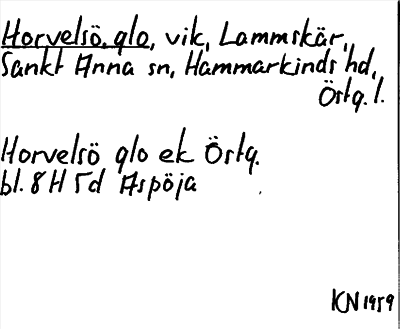 Horvelsö, glo, vik, Lammskär,
Sankt Anna sn, Hammarkinds hd,
Östg. l.
Horvelsö glo ek Östg.
bl. 8 H 5d Aspöja
KN 1959